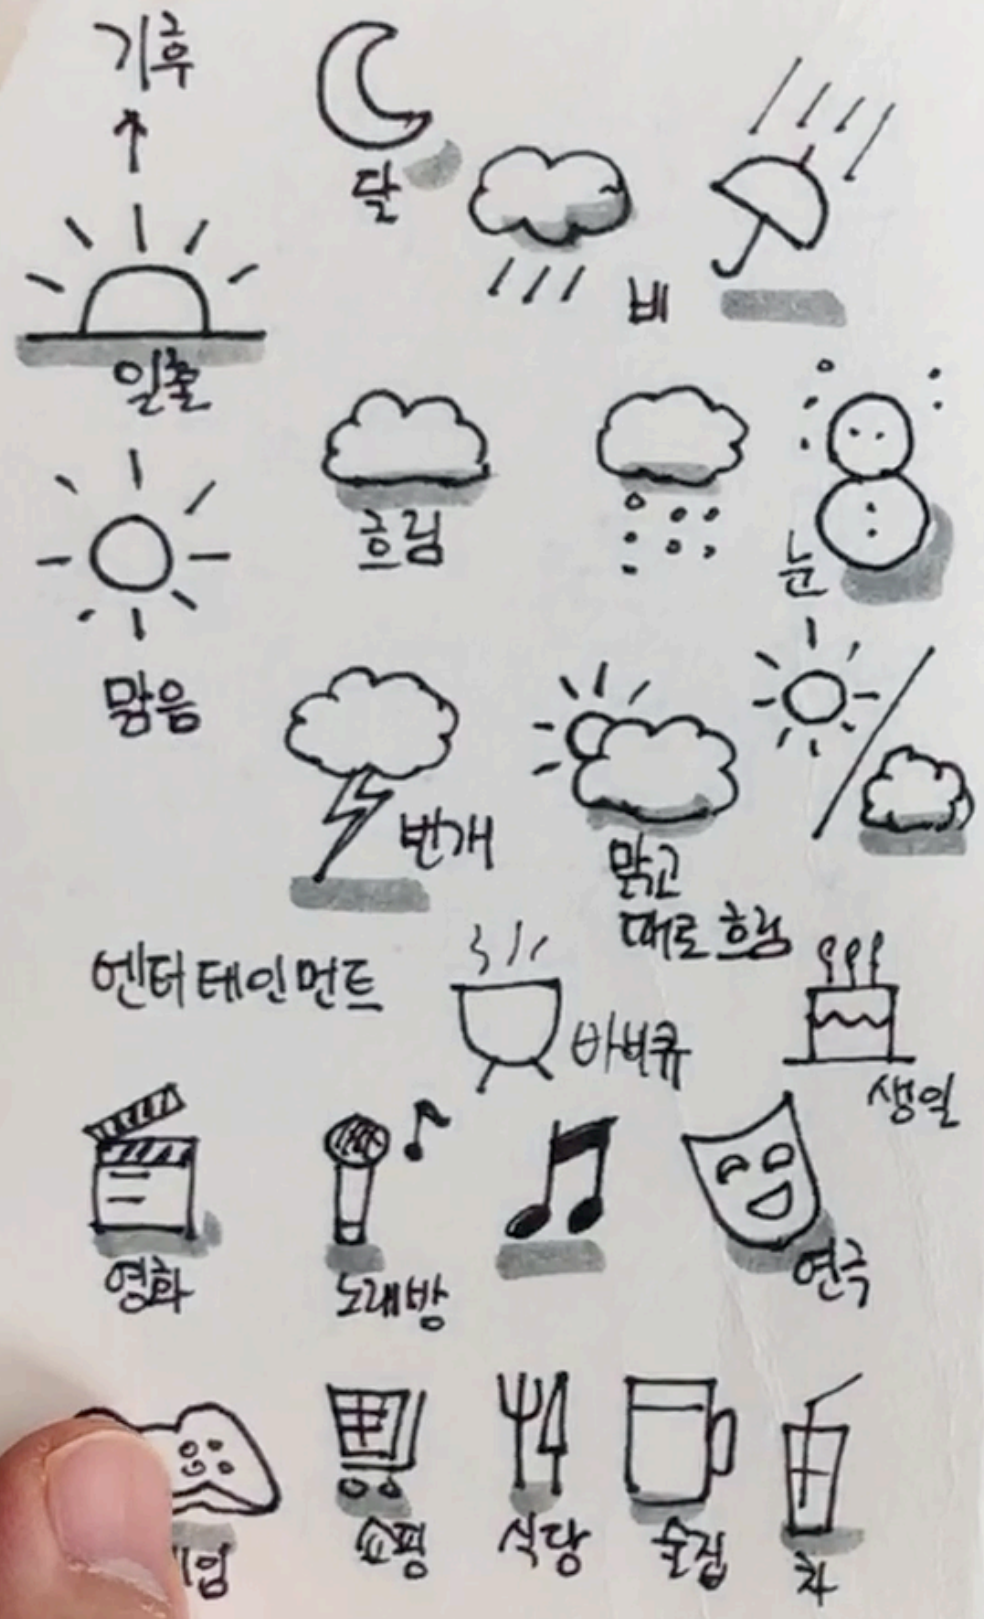 기후
달
비
일출
흐림
눈
맑음
번개
맑고
때로 흐림
엔터테인먼트
바비큐
생일
영화
노래방
연극
쇼핑
식당
술집
차